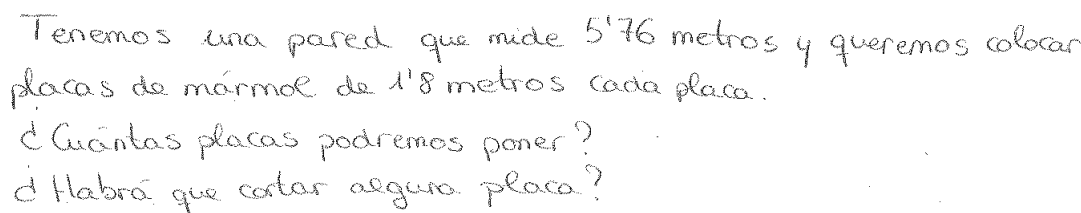 Tenemos una pared que mide 5'76 metros y queremos colocar
placas de mármol de 1'8 metros cada placa.
¿Cuántas placas podremos poner?
¿Habrá que cortar alguna placa?